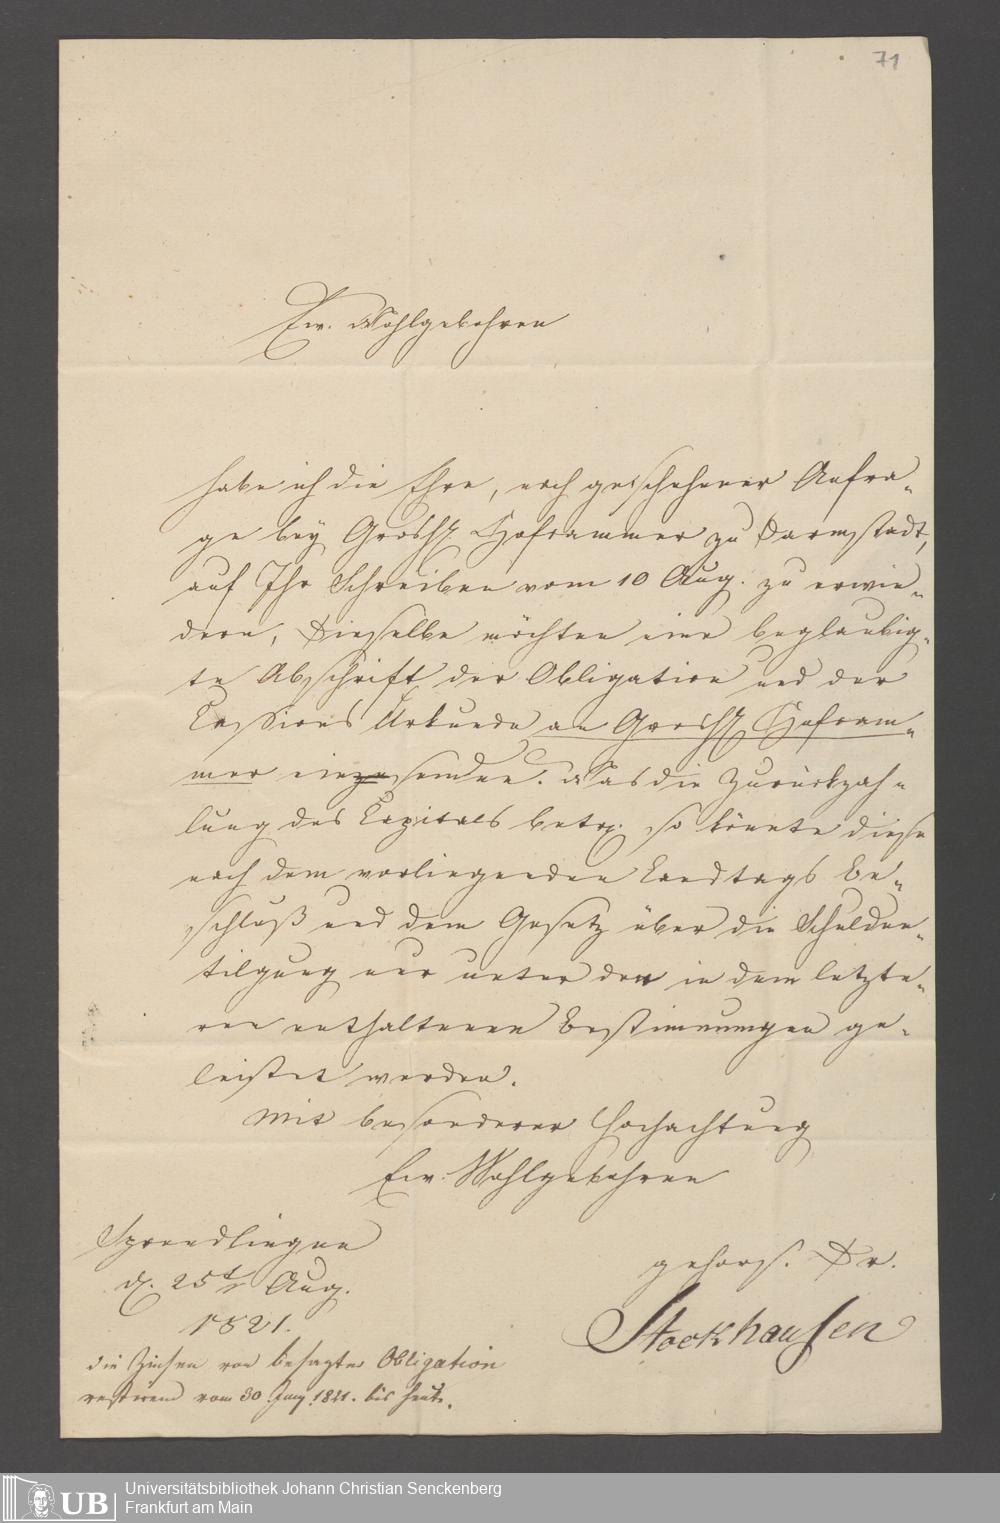 71
Ew. Wohlgebohren
habe ich die Ehre, nach geschehener Anfra-
ge bey Grosh. Hofkammer zu Darmstadt,
auf Ihr Schreiben vom 10 Aug. zu erwie-
dern, Dieselbe möchten eine beglaubig-
te Abschrift der Obligation und der
Cessions Urkunde an Grosh. Hofkam-
mer einzusenden. Was die Zurückzah-
lung des Capitals betr. so könnte diese
nach dem vorliegenden Landtags Be-
schluß und dem Gesetz über die Schulden-
tilgung nur unter den in dem letzte-
ren enthaltenen Bestimmungen ge-
leistet werden.
Mit besonderer Hochachtung
Ew. Wohlgebohren
Sprendlingen
d. 25t Aug.
1821.
gehors. Dr.
Stockhausen
die Zinsen von besagter Obligation
restiren vom 30 Juny 1821. bis heute.
UB
Universitätsbibliothek Johann Christian Senckenberg
Frankfurt am Main